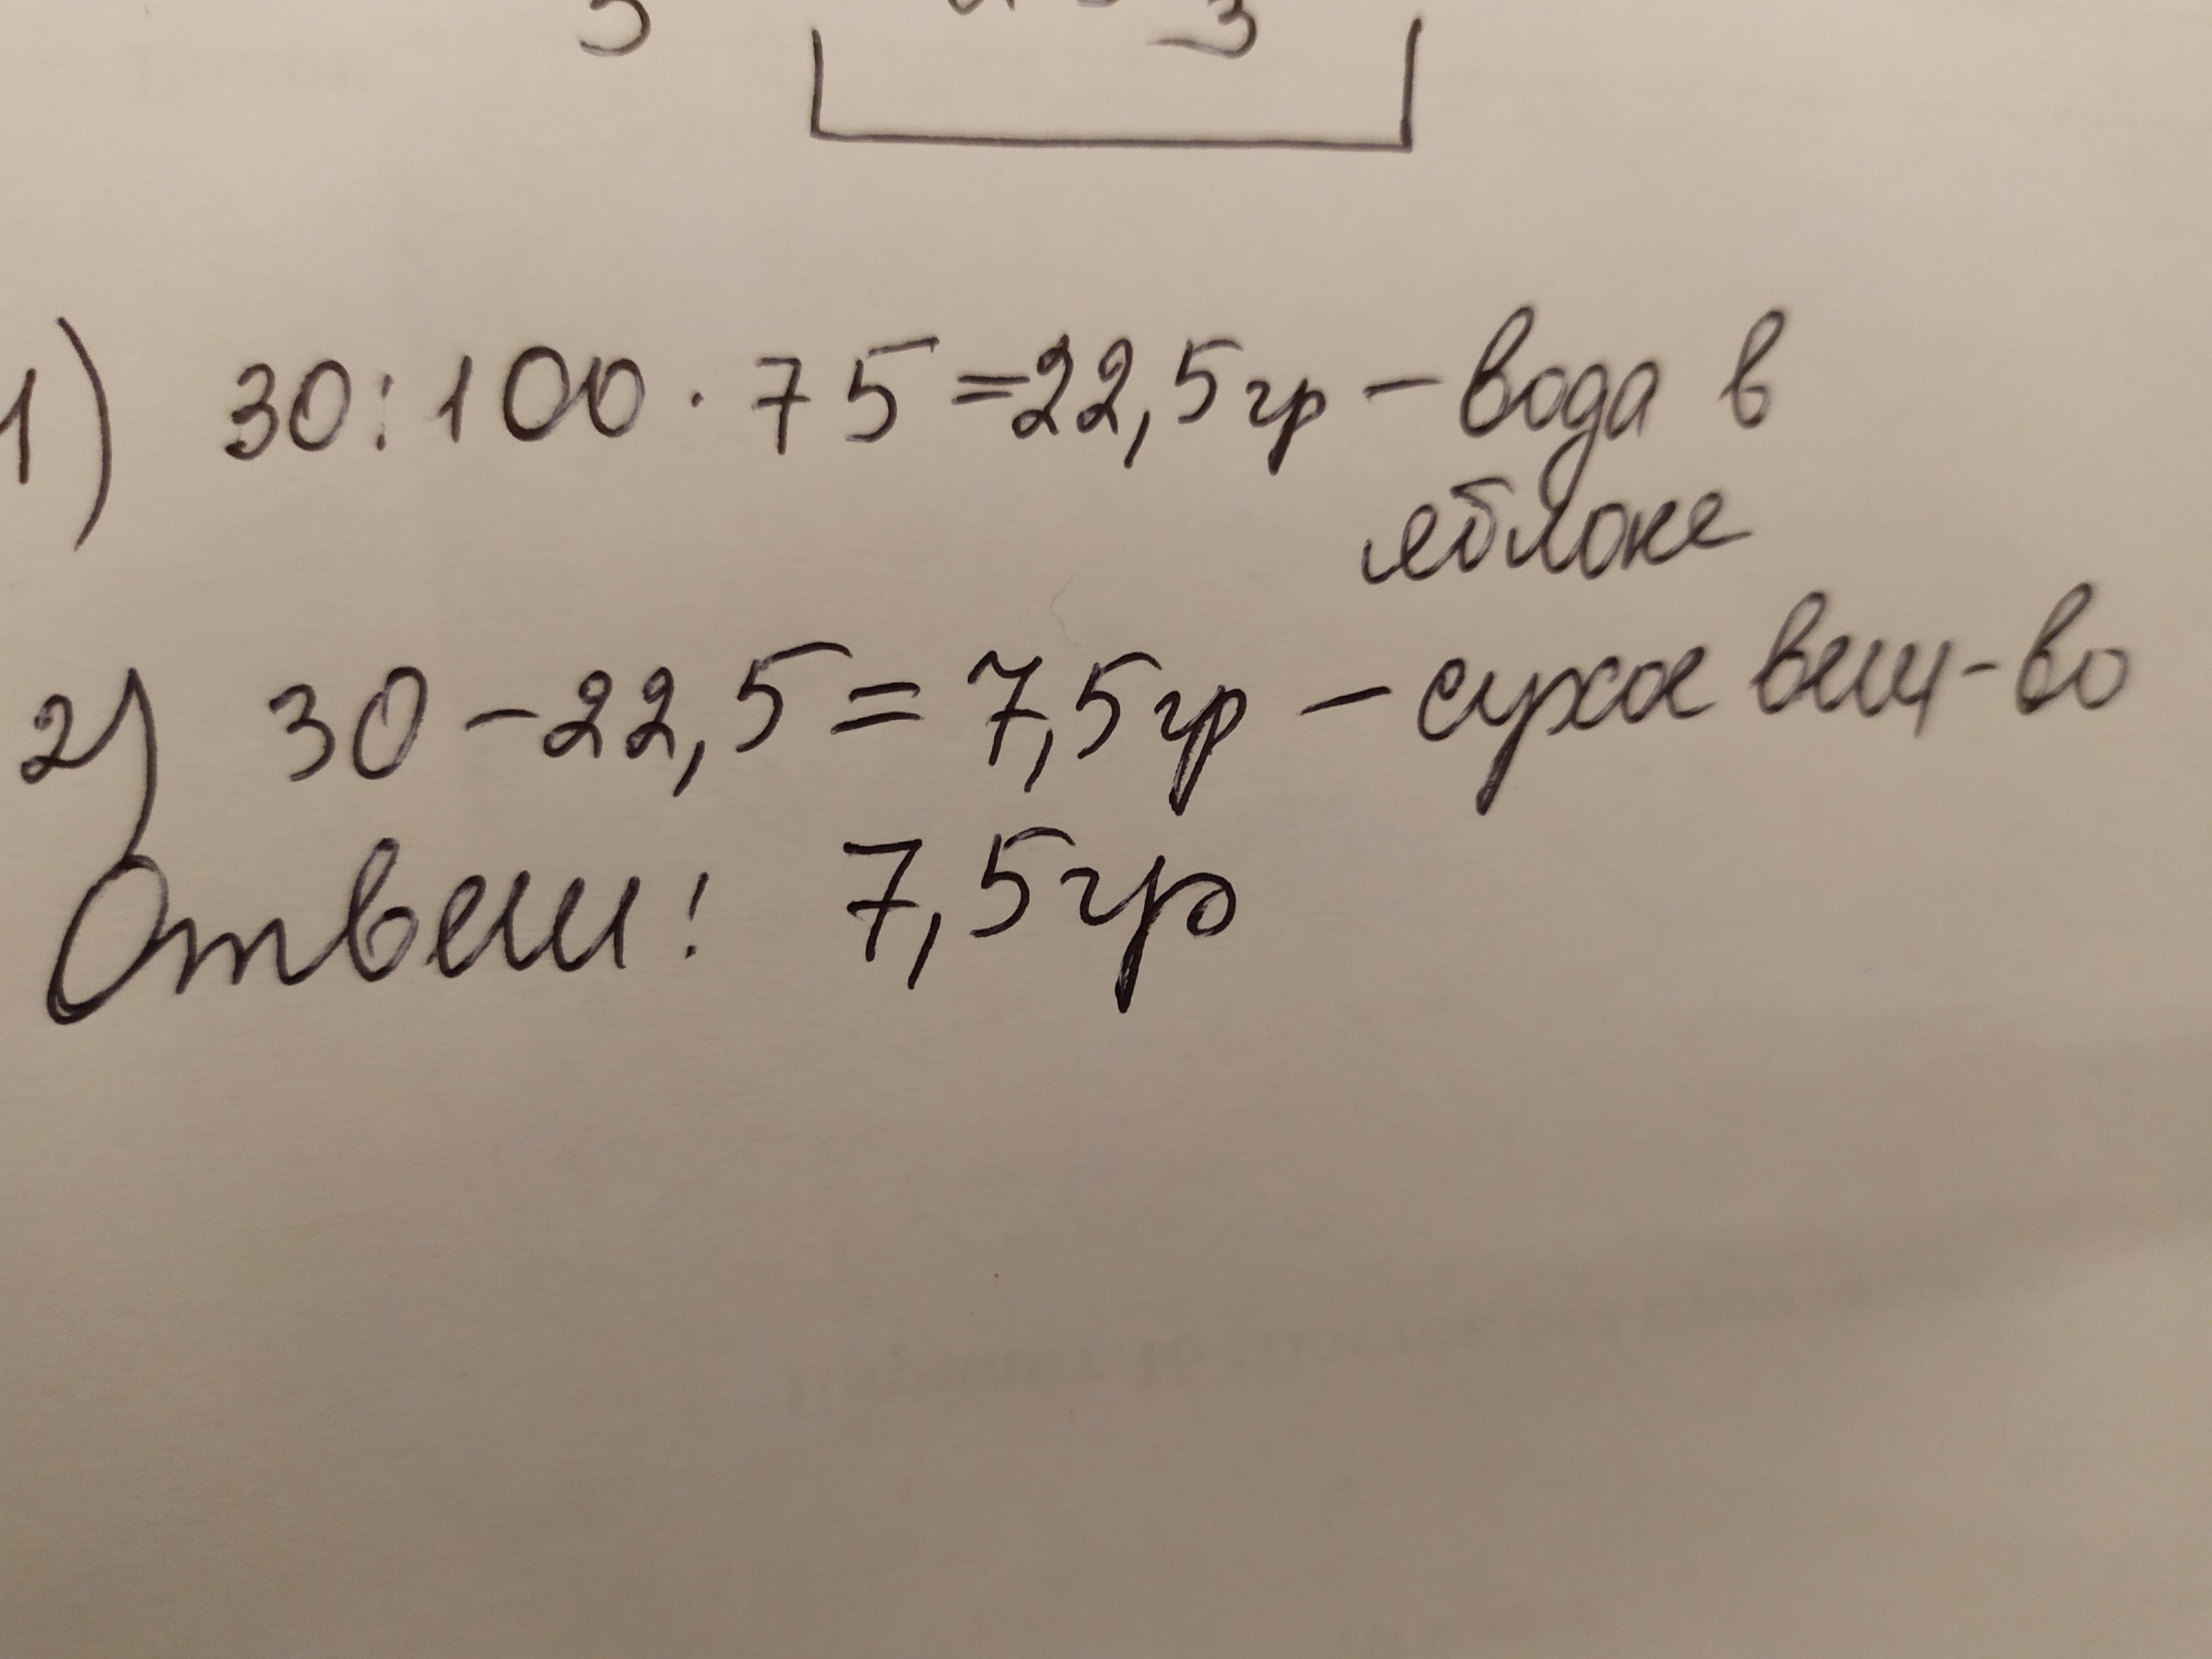 1) 30:100·75=22,5гр – вода в
яблоке
2) 30-22,5=7,5гр – сухое вещ-во
Ответ: 7,5гр